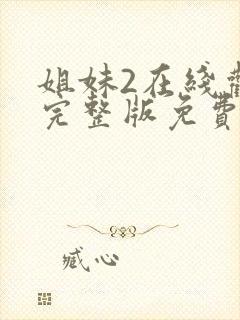 姐妹2在綫觀
完整版免費
臧心